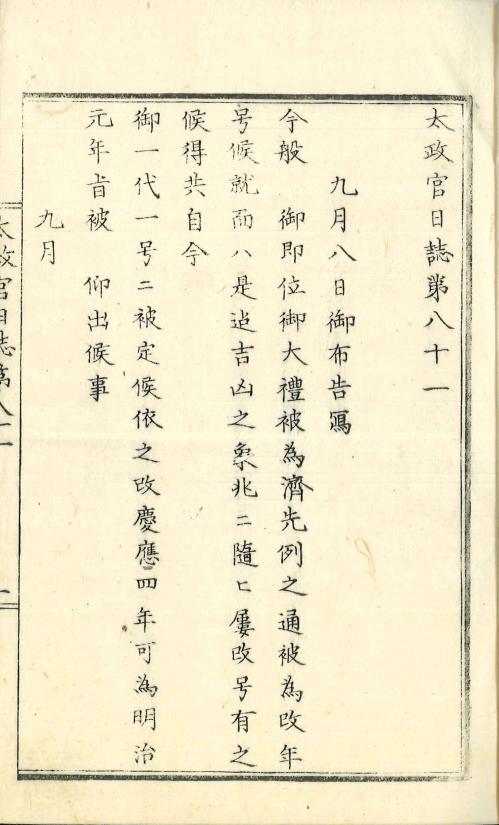 太政官日誌第八十一
九月八日御布告寫
今般　御即位御大禮被為濟先例之通被為改年
号候就而ハ是迠吉凶之象兆ニ隨ヒ屢改号有之
候得共自今
御一代一号ニ被定候依之改慶應四年可為明治
元年旨被　仰出候事
九月
太政官日誌第八十一
一